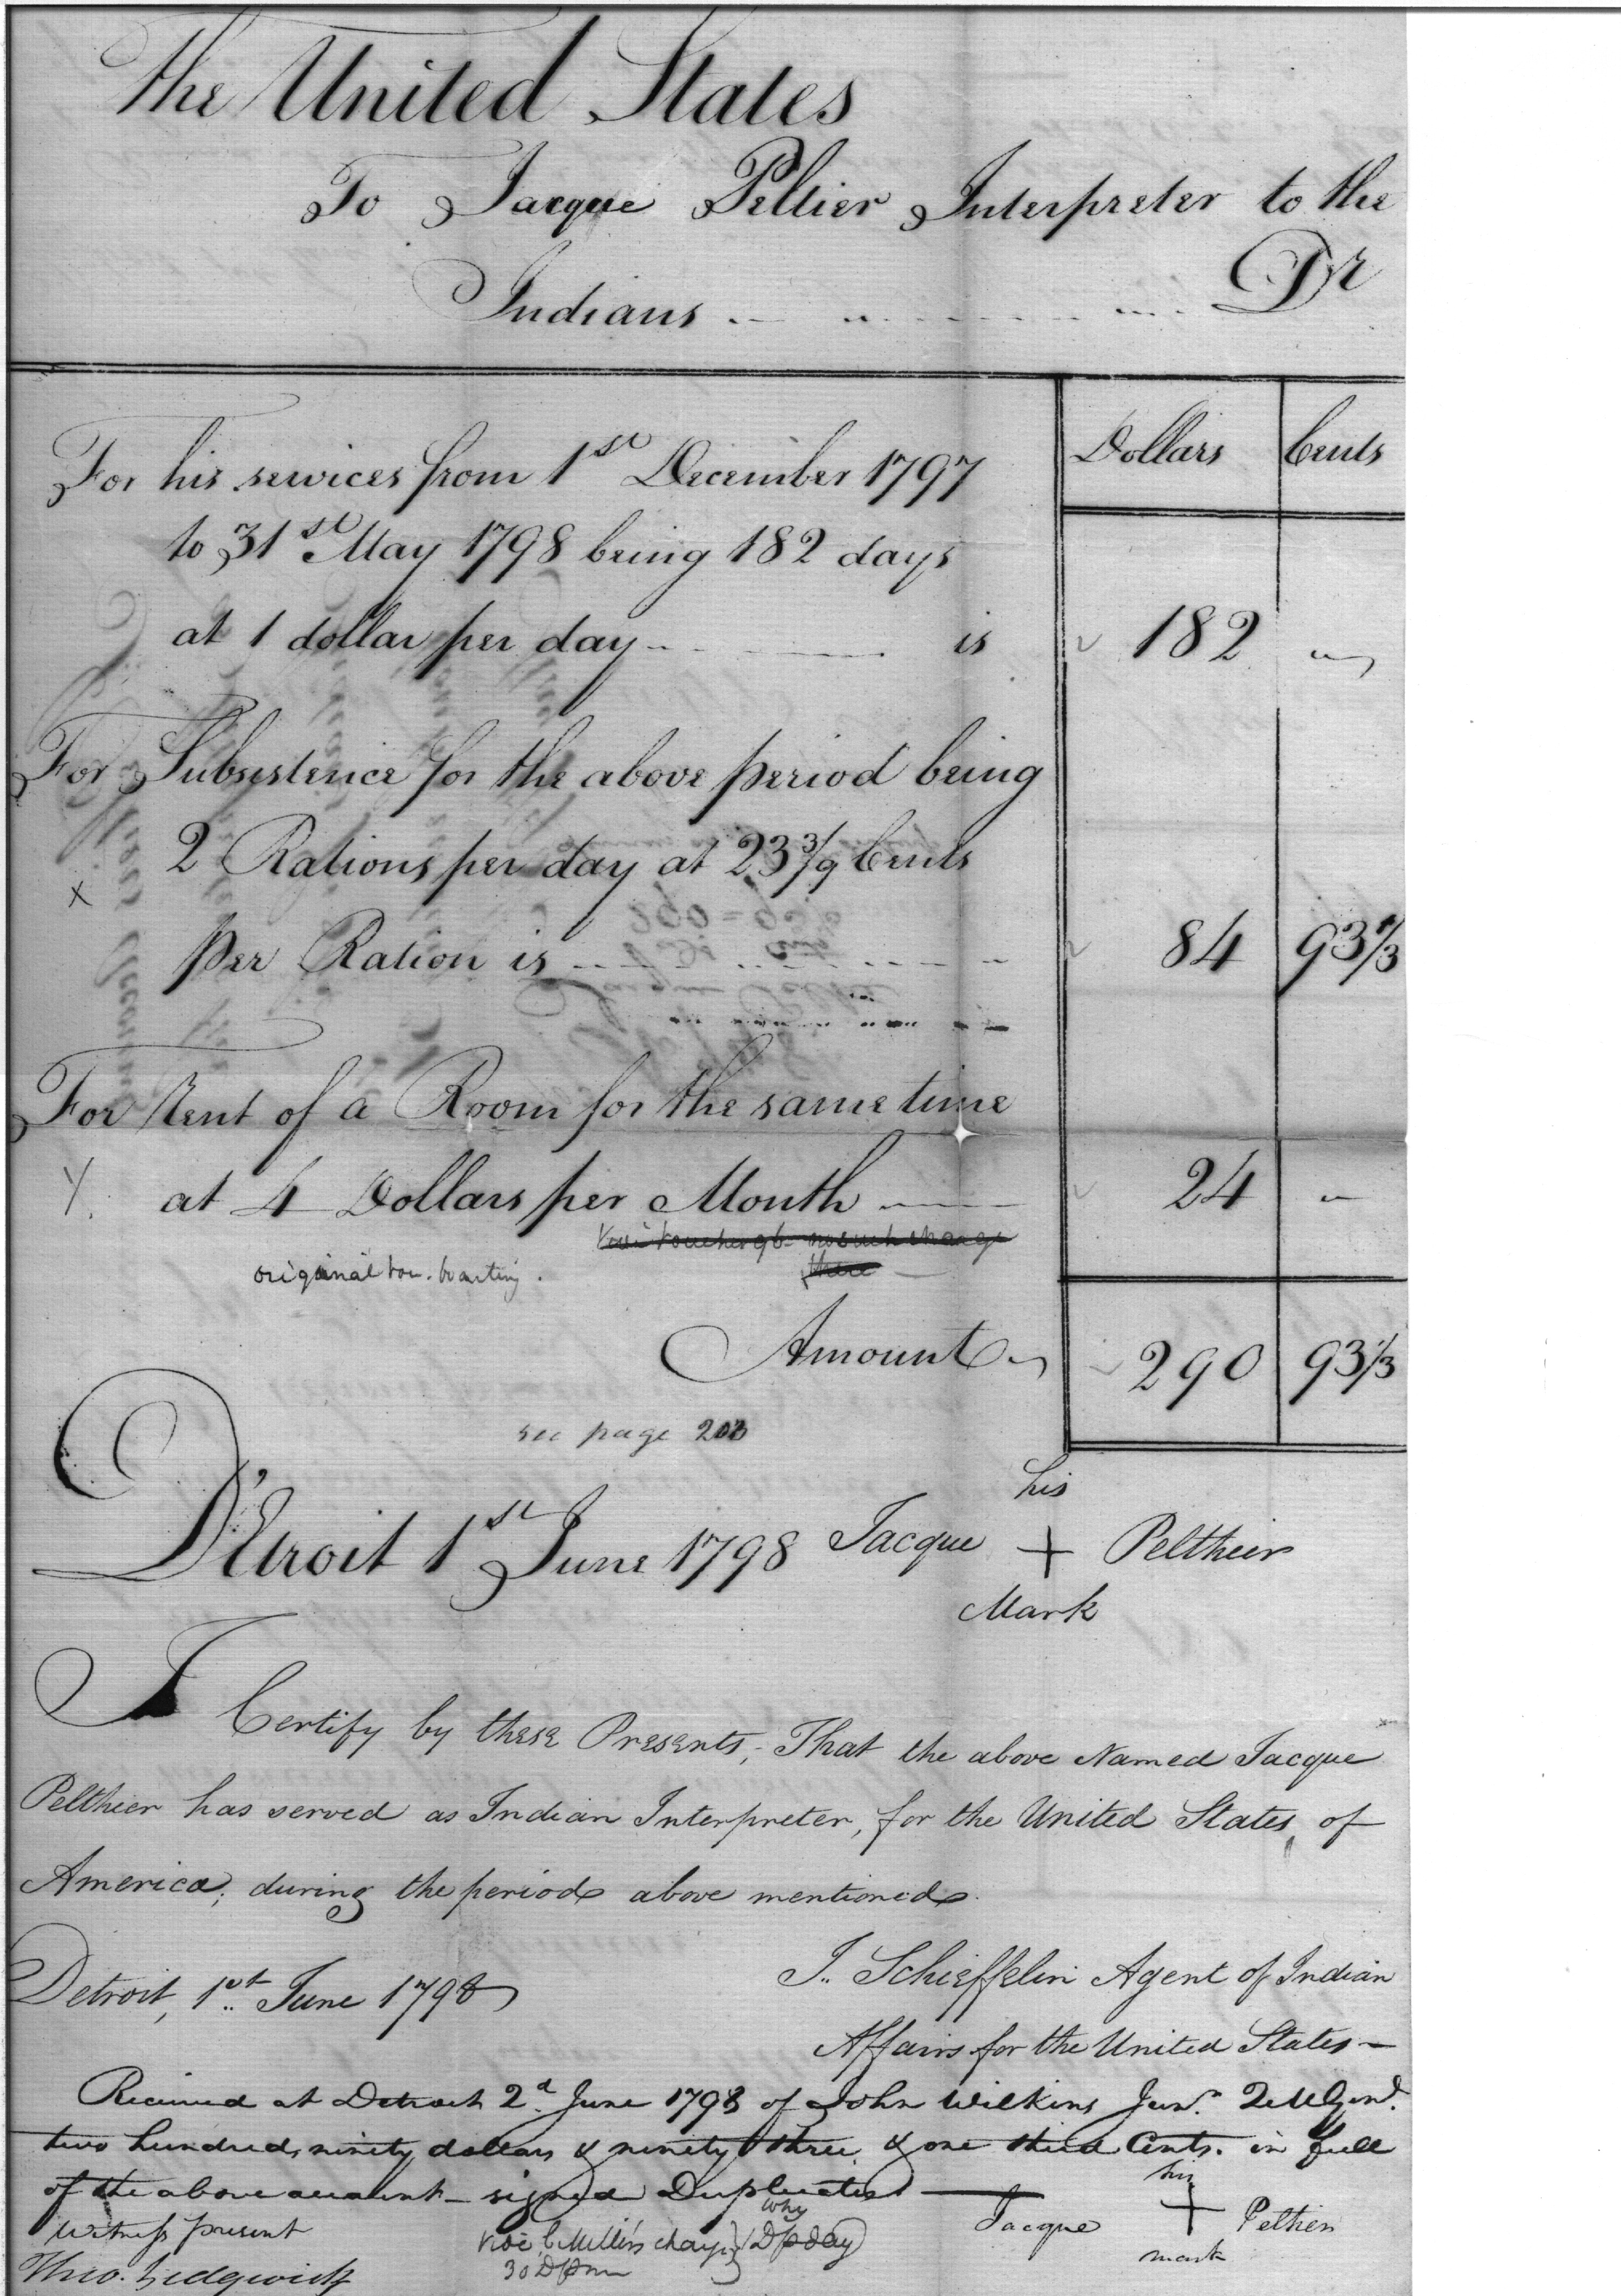 The United States
To Jacque Peltier Interpreter to the
Indians Dr
Dollars Cents
For his services from 1st December 1797
to 31st May 1798 being 182 days
at 1 dollar per day is 182
For Subsistence for the above period being
2 Rations per day at 23 3/9 Cents
per Ration is 84 93 1/3
For Rent of a Room for the same time
at 4 Dollars per Month 24
no such charge
original
there
Amount 290 93 1/3
see page
his
Detroit 1st June 1798 Jacque + Peltheir
Mark
I Certify by these Presents, That the above Named Jacque
Peltheir has served as Indian Interpreter, for the United States of
America, during the period above mentioned
J. Schieffelin Agent of Indian
Detroit, 1st June 1798
Affairs for the United States —
Received at Detroit 2d June 1798 of John Wilkins Junr. QMGenl.
two hundred, ninety dollars & ninety three & one third Cents. in full
of the above account — signed Duplicates
his
Jacque + Peltier
mark
Witness present
why
Vide C Miller's charge 1 D p day
30 D p m
Theo. Sedgwick